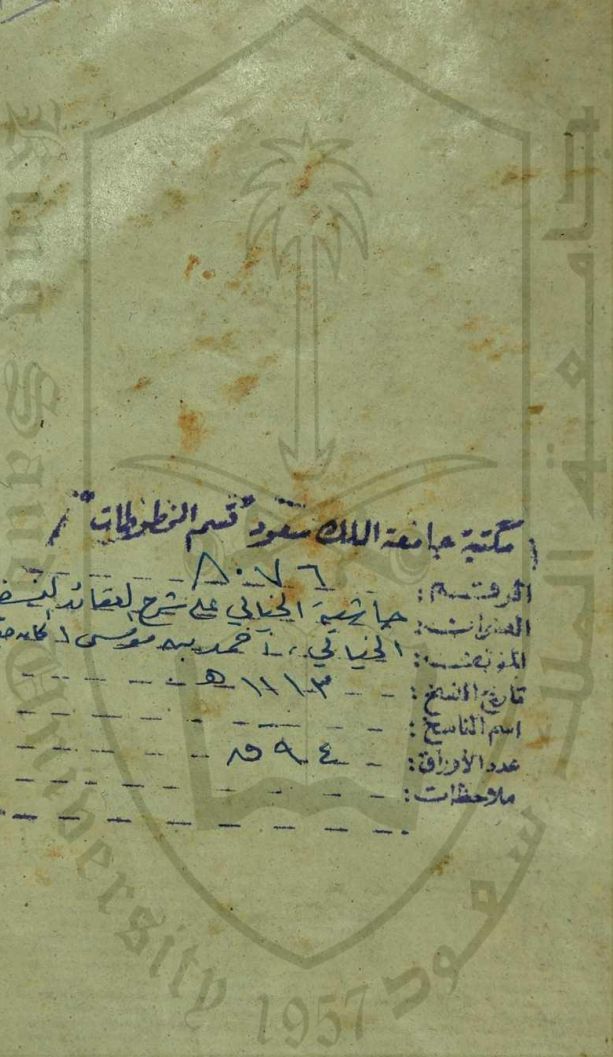 مكتبة جامعة الملك سعود "قسم المخطوطات"
الرقم: ٨٠٧٦
العنوان: حاشية الخيالي على شرح العقائد النسف
المؤلف: الخيالي، أحمد بن موسى
تاريخ النسخ: ١١١٣ هـ
اسم الناسخ:
عدد الأوراق: ٩٤ ق
ملاحظات:
جامعة الملك سعود
King Saud University
1957